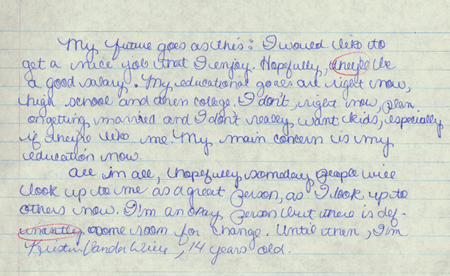 My future goes as this: I would like to
get a nice job that I enjoy. Hopefully, they'll be
a good salary. My educational goaes are right now,
high school and then colege. I don't, right now, plan
on getting married and I don't really want kids, especially
if they're like me. My main concern is my
education now.
All in all, hopefully, someday, people will
look up to me as a great person, as I look up to
others now. I'm an okay person but there is def-
inantly some room for change. Until then, I'm
14 years old.